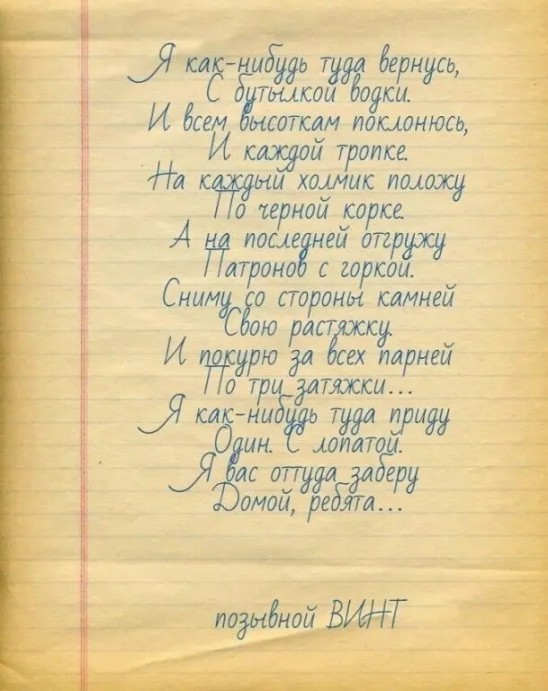 Я как-нибудь туда вернусь,
С бутылкой водки.
И всем высоткам поклонюсь,
И каждой тропке.
На каждый холмик положу
По черной корке.
А на последней отгружу
Патронов с горкой.
Сниму со стороны камней
Свою растяжку.
И покурю за всех парней
По три затяжки...
Я как-нибудь туда приду
Один. С лопатой.
Я вас оттуда заберу
Домой, ребята...
позывной ВИНТ